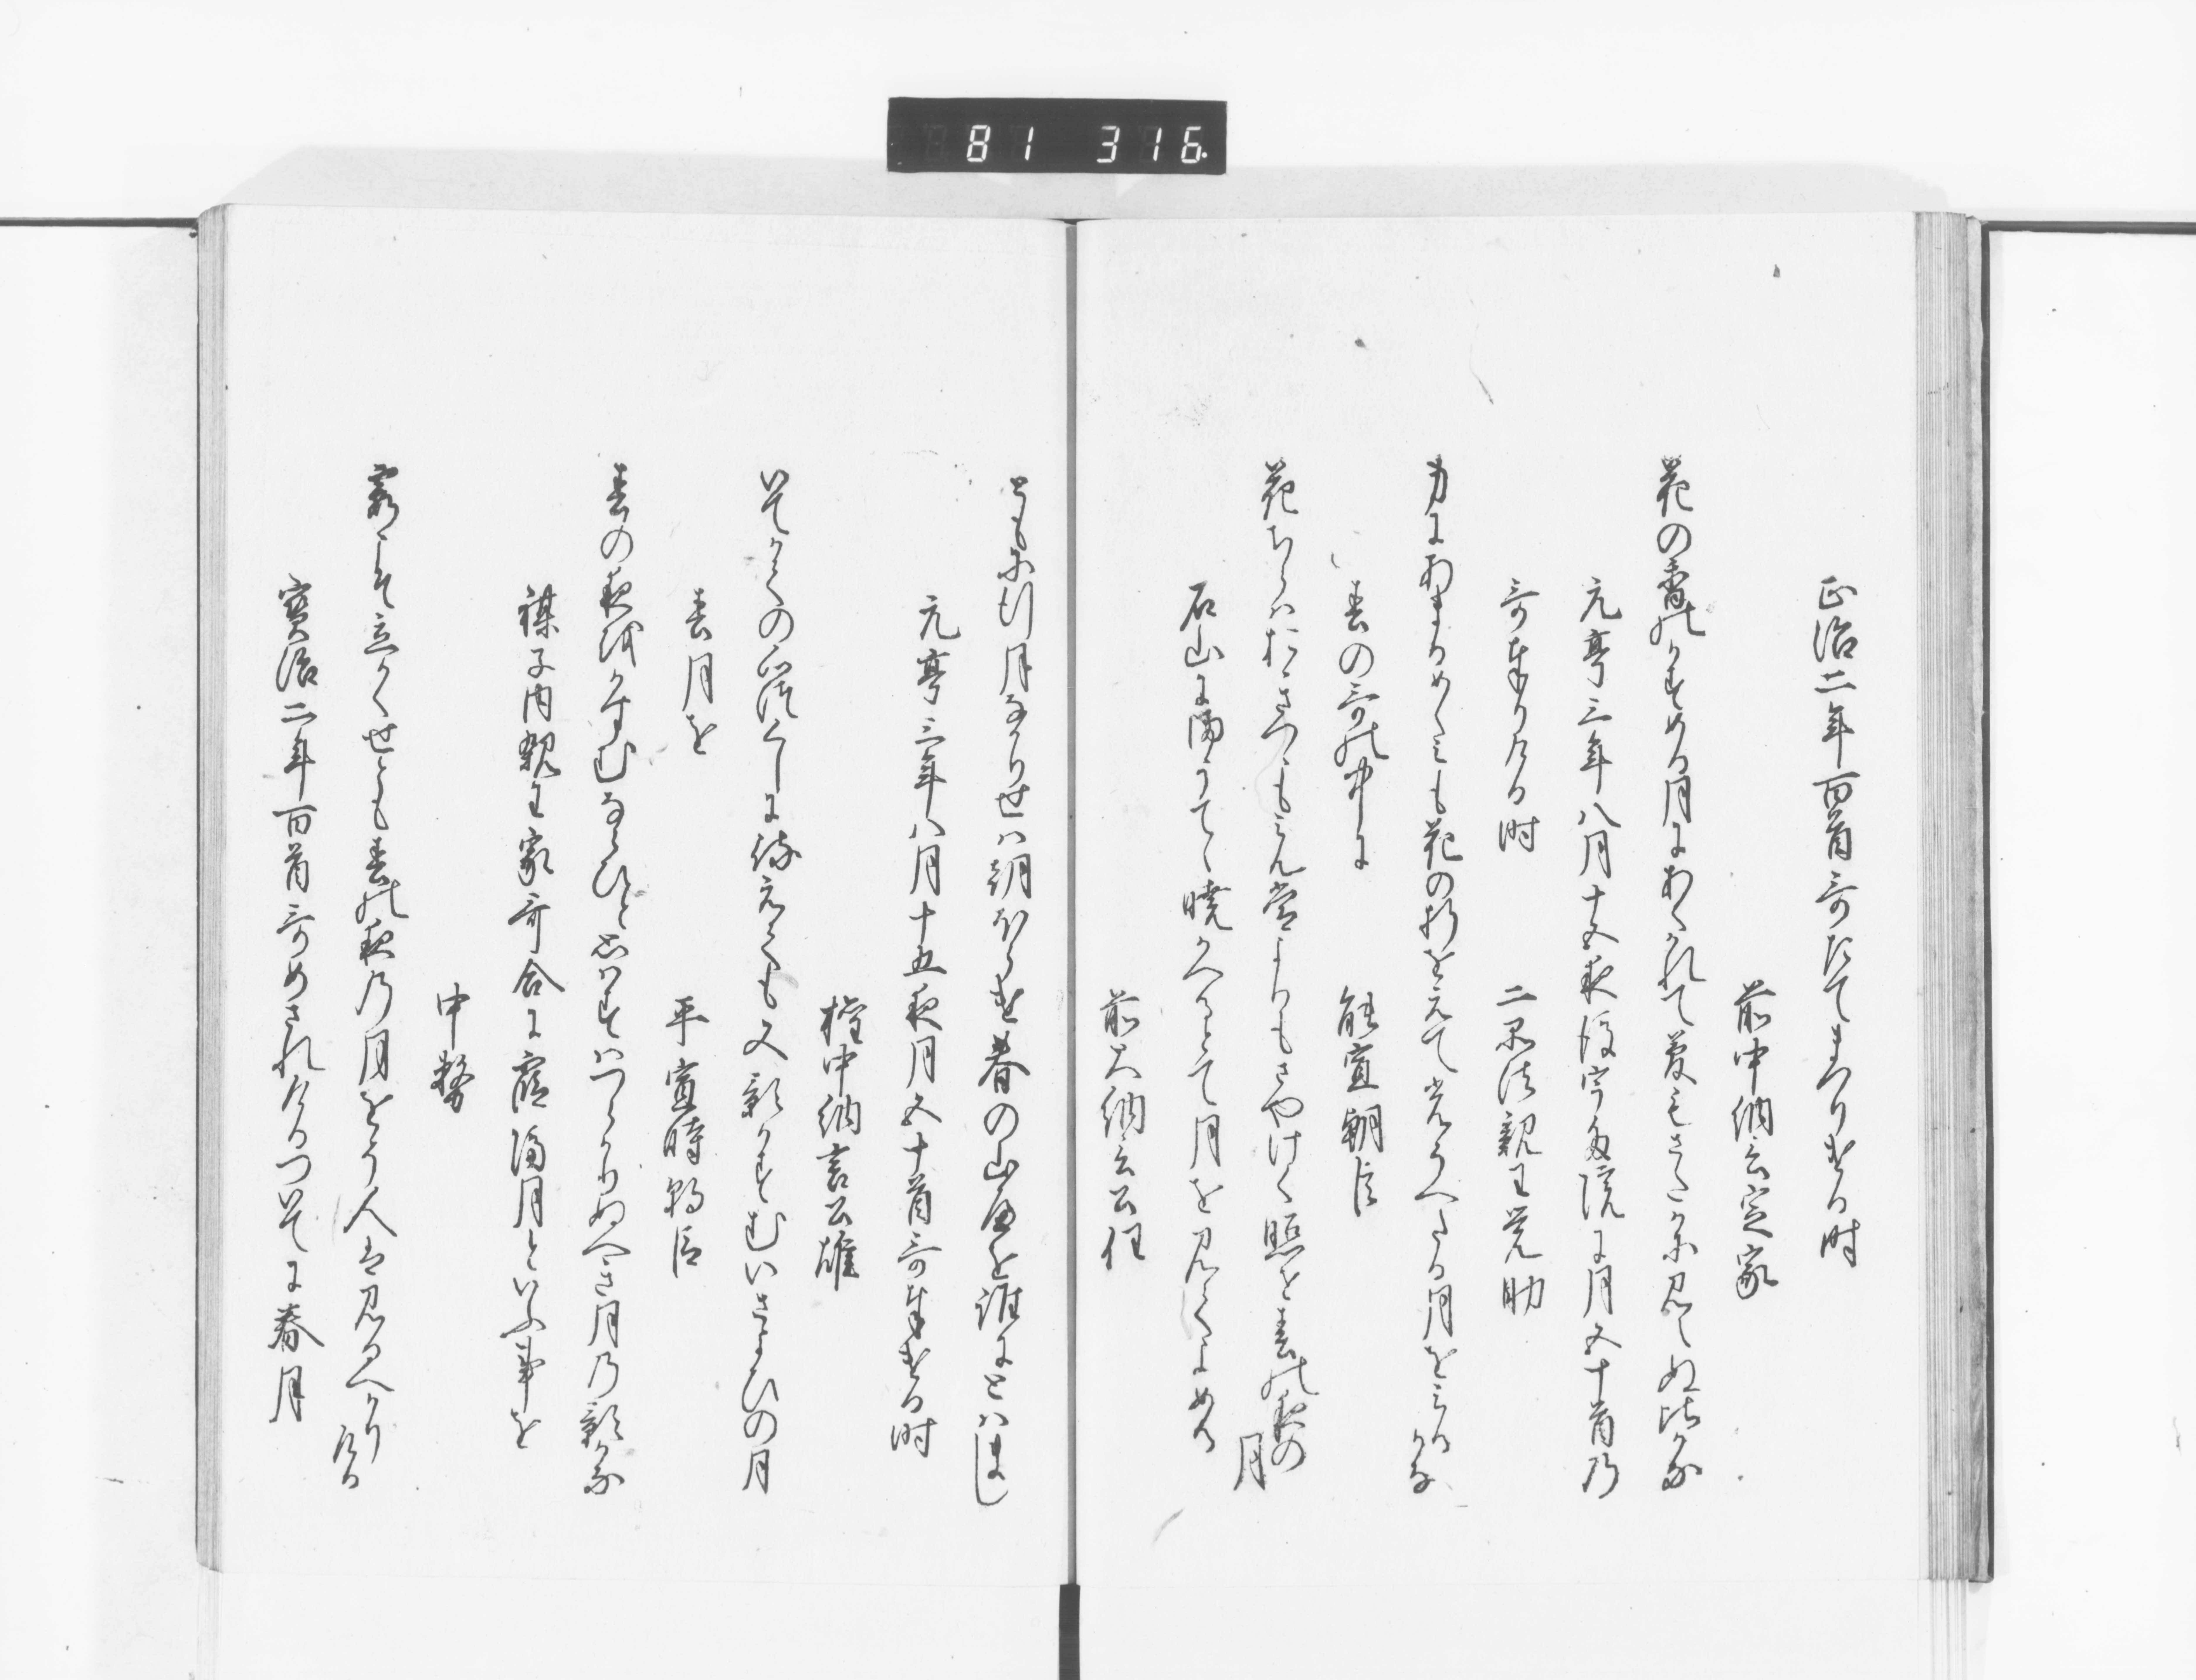 81 316
正治二年百首哥たてまつりける時
前中納言定家
花の香のかすめる月にあくかれて夢もさたかに見えぬ比かな
元亨三年八月十五夜後宇多院に月五十首の
哥奉りける時 二品法親王覚助
身にあまるめくみも花の折をえて光うへある月をみる
かな
春の哥の中に 能宣朝臣
花ちらはおきつゝもみん常よりもさやけく照せ春の夜の
月
石山にまうてゝ暁かへるとて月を見てよめる
前大納言公任
ともに行月なかりせは朝ほらけ春の山へを誰にとはまし
元亨三年八月十五夜月五十首哥奉ける時
権中納言公雄
いてかての心つくしに待えても又影かすむいさよひの月
春月を 平宣時朝臣
春の夜はかすむならひと思はすはつらかりぬへき月の影かな
禖子内親王家哥合に霞隔月といふ事を
中務
霧こそ立かくせとも春の夜の月をう人は見るへかり
ける
寳治二年百首哥めされけるつゐてに春月